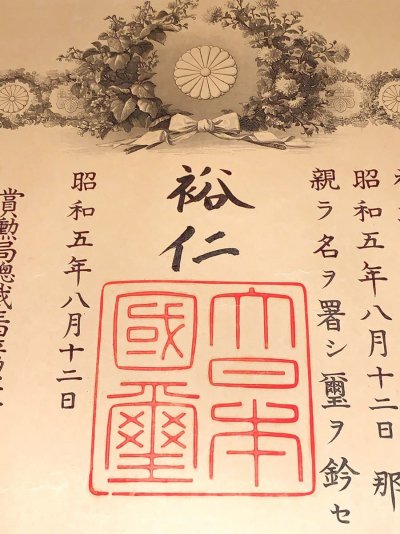 昭和五年八月十二日那
親ラ名ヲ署シ璽ヲ鈐セ
裕仁
大日本
國璽
昭和五年八月十二日
賞勳局總裁